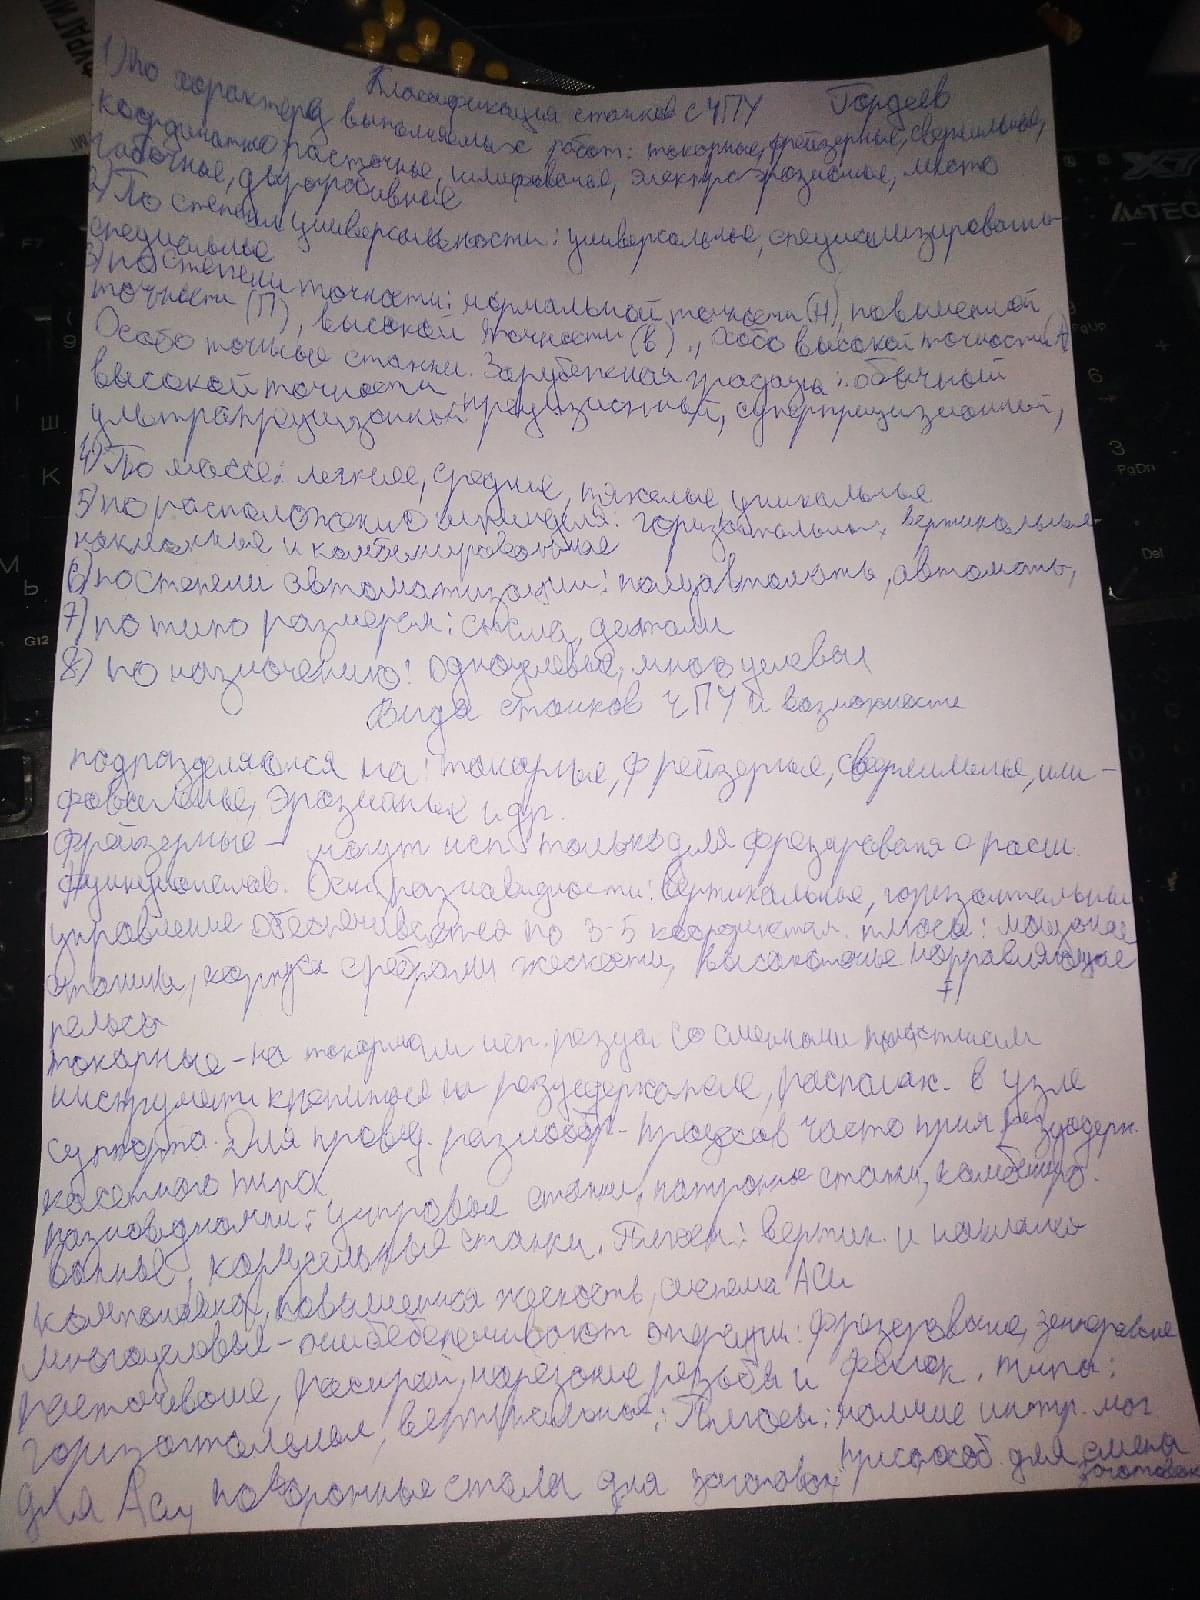 Классификация станков с ЧПУ Гордеев
1) По характеру выполняемых работ: токарные, фрейзерные, сверлильные,
координатно расточные, шлифовачые, электро эрозионые, листо
гибочные, дыропробивные
2) По степени универсальности: универсальные, специализированы
специальные
3) по степени точности: нормальной точности (Н), повышенной
точности (П), высокой точности (В)., Особо высокой точности (А
Особо точные станки. Зарубежная градация: обычный
высокой точности прецизионный, суперприцизионный,
ультрапрецизионной
4) По массе: легкие, средние, тяжелые, уникальные
5) по расположению шпинделя: горизотальных, вертикальные
наклонные и комбенированные
6) по степени автоматизации: полуавтоматы, автоматы,
7) по типо размерам: стола, детали
8) по назначению: одноцелевые, многоцелевые
Виды станков ЧПУ и возможности
подразделяются на: токарные, фрейзерные, сверлильные, шли-
фовальные, эрозианые и др.
фрейзерные - могут исп. только для фрезерования с расш.
функционалав. Осн. разнавидности: вертикальные, горизонтальные
управление обеспечивается по 3-5 координатам. плюсы: мощоная
станина, корпуса с ребрами жескости, высокоточные напрравляющие
рельсы
токарные - на токарным исп. резцы со сменными пластинами
инструмент крепится на резцедержателе, располаж. в узле
суппорта. Для провед. разнообр. процессов часто прим резцодерж.
касетного типа
разновидности: центровые станки, патроные станки, комбениро.
ванные, карусельные станки. Плюсы: вертик. и наклоная
компоновка, повышенная жескость, система АСИ
многоцелевые - обебеспечивают операции: фрезерование, зенкерование
расточивание, нарезание резьбы и типы:
горизонтальные, вертикальные; Плюсы: наличие инстр. маг
для АСИ, поворотные стола для заготовок, приспособ. для смены
заготовок
F7
G12
A4TECH
Del
PgDn
PgUp